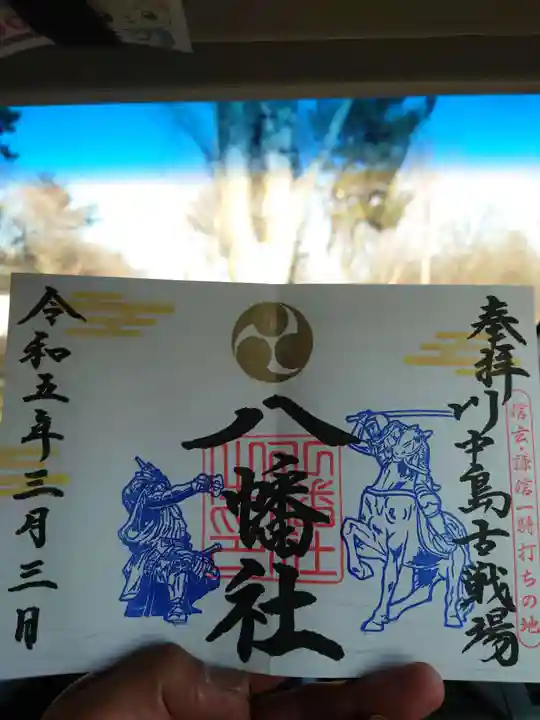 奉拝
川中島古戦場
信玄・謙信一騎打ちの地
八幡社
令和五年三月三日